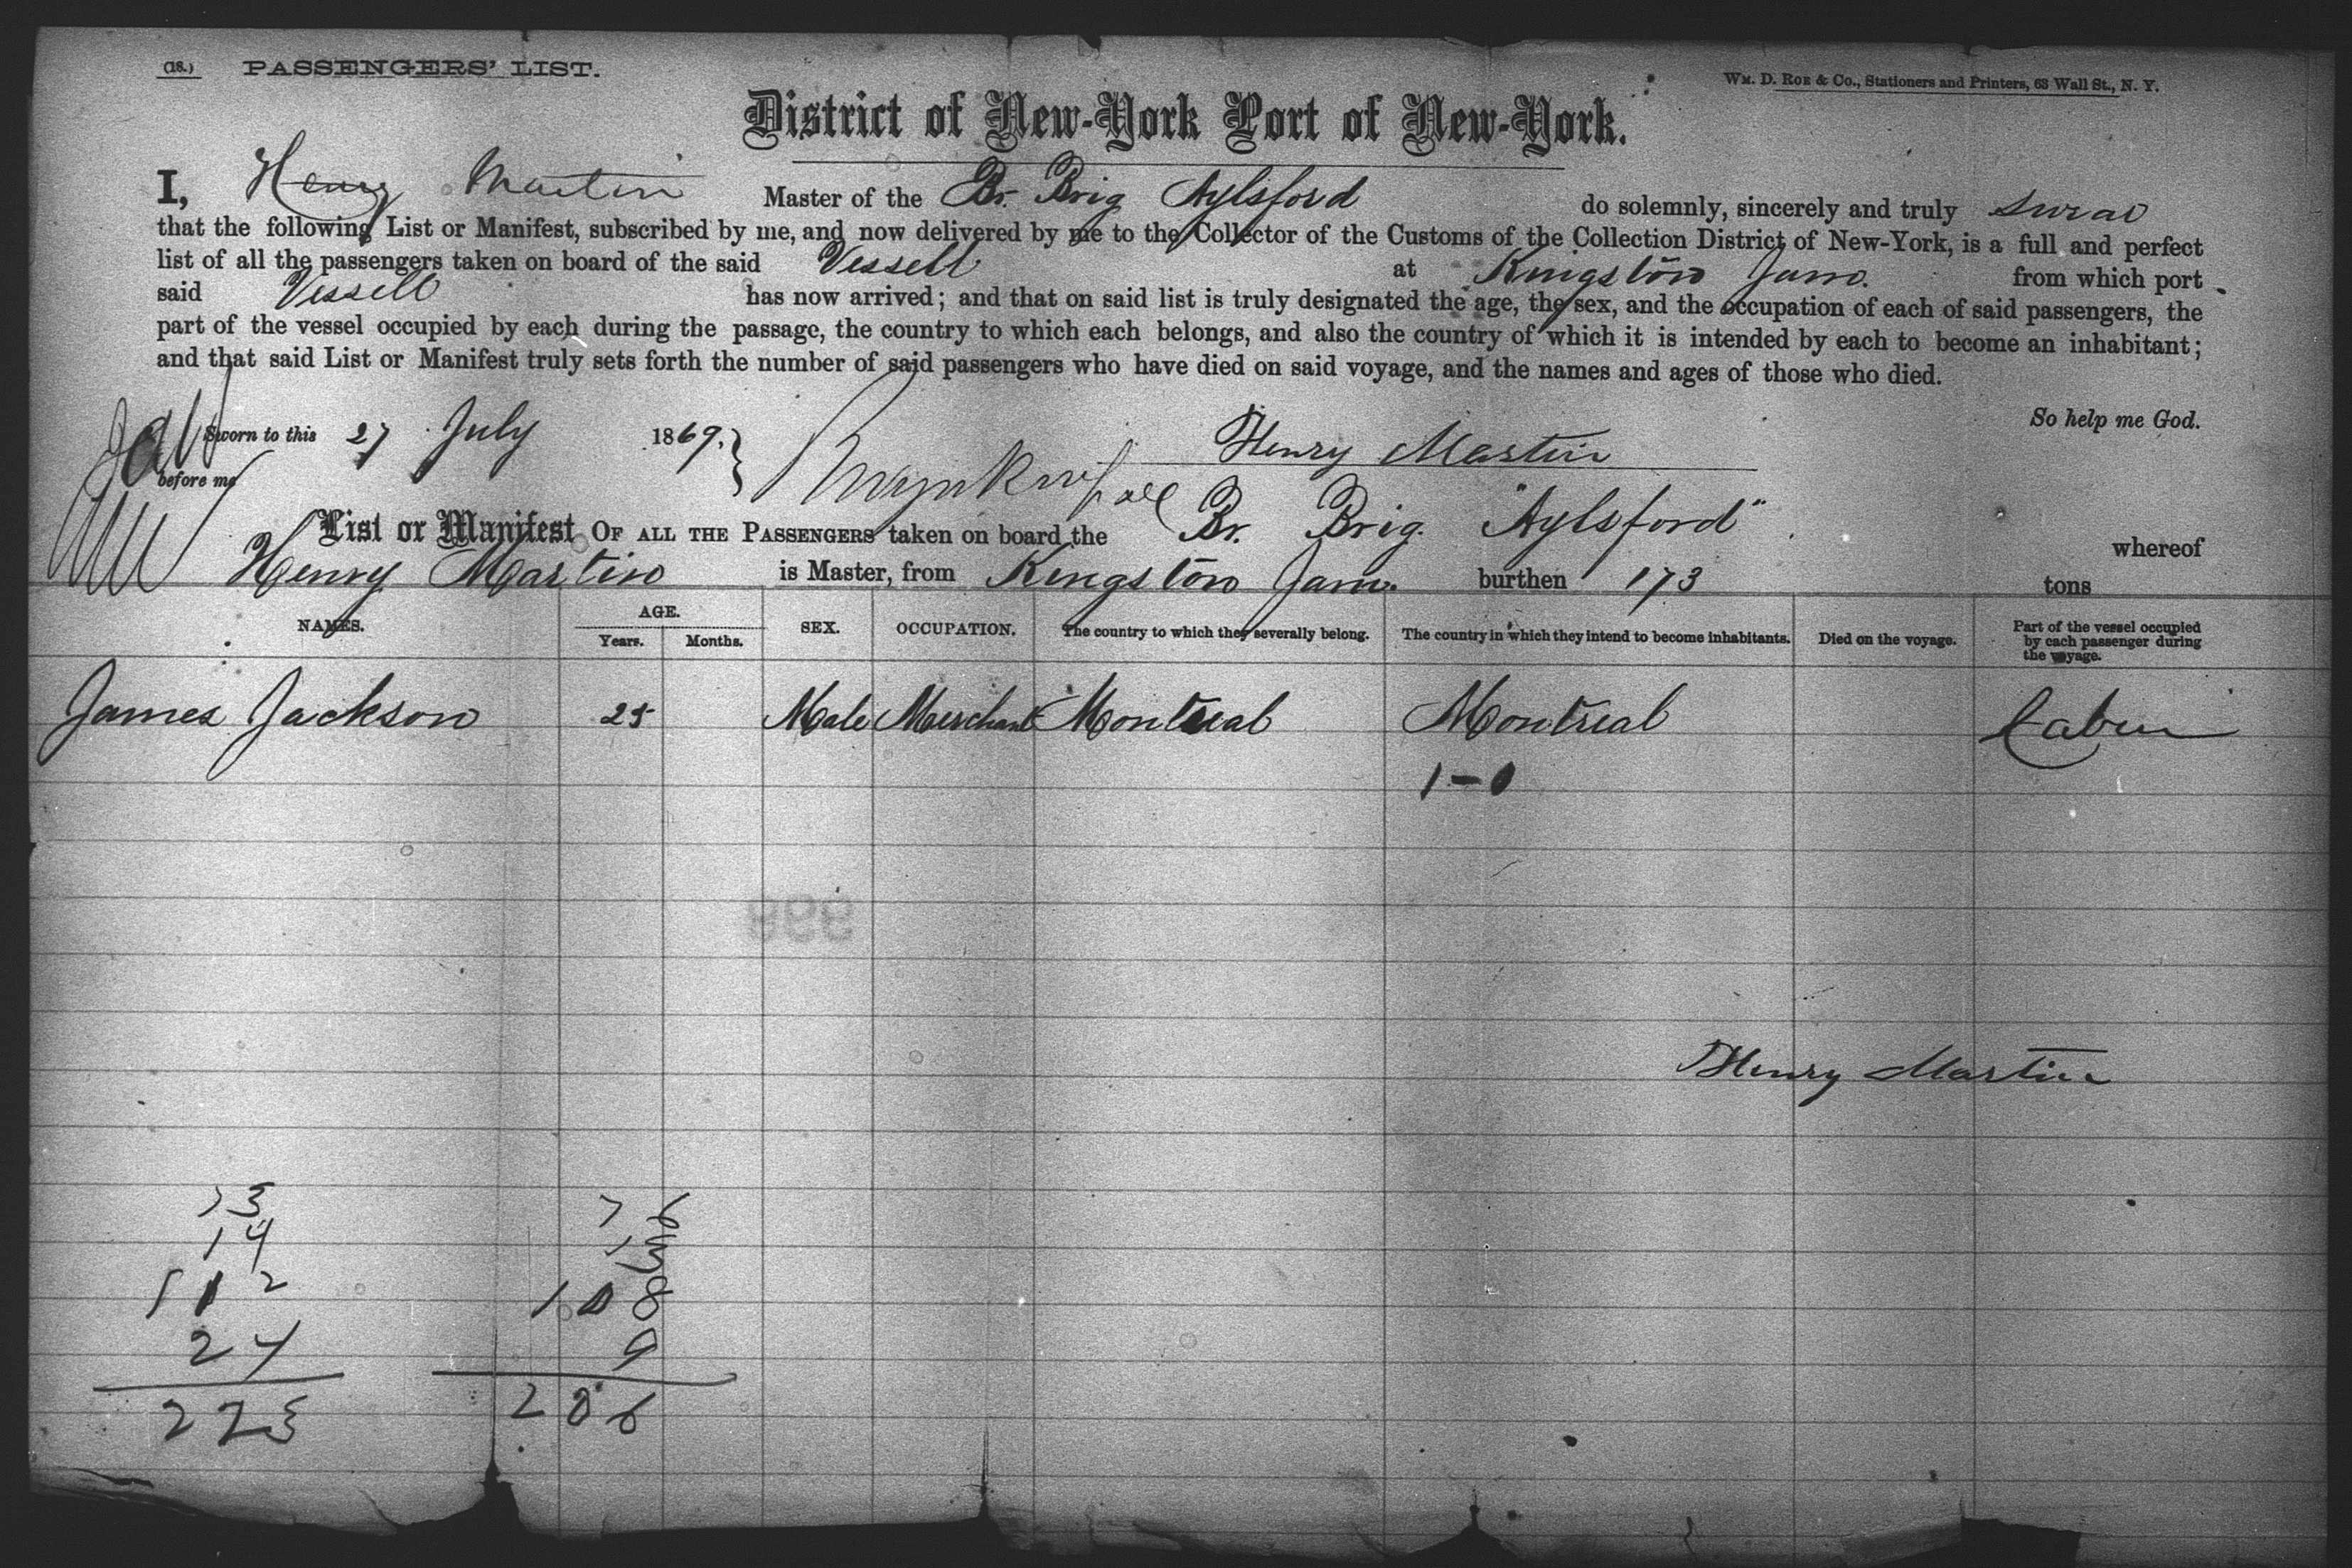 (18.) PASSENGERS' LIST.
WM. D. ROE & Co., Stationers and Printers, 63 Wall St., N. Y.
District of New-York Port of New-York.
I, Henry Martin Master of the Br. Brig Aylsford do solemnly, sincerely and truly swear
that the following List or Manifest, subscribed by me, and now delivered by me to the Collector of the Customs of the Collection District of New-York, is a full and perfect
list of all the passengers taken on board of the said Vessell at Kingston Jam. from which port
said Vessell has now arrived; and that on said list is truly designated the age, the sex, and the occupation of each of said passengers, the
part of the vessel occupied by each during the passage, the country to which each belongs, and also the country of which it is intended by each to become an inhabitant;
and that said List or Manifest truly sets forth the number of said passengers who have died on said voyage, and the names and ages of those who died.
So help me God.
Sworn to this 27 July 1869. Henry Martin
before me
List or Manifest OF ALL THE PASSENGERS taken on board the Br. Brig. "Aylsford" whereof
Henry Martin is Master, from Kingston Jam. burthen 173 tons
NAMES. AGE. Years. Months. SEX. OCCUPATION. The country to which they severally belong. The country in which they intend to become inhabitants. Died on the voyage. Part of the vessel occupied by each passenger during the voyage.
James Jackson 25 Male Merchant Montreal Montreal Cabin
1-0
999
Henry Martin
14
112
24
223
206